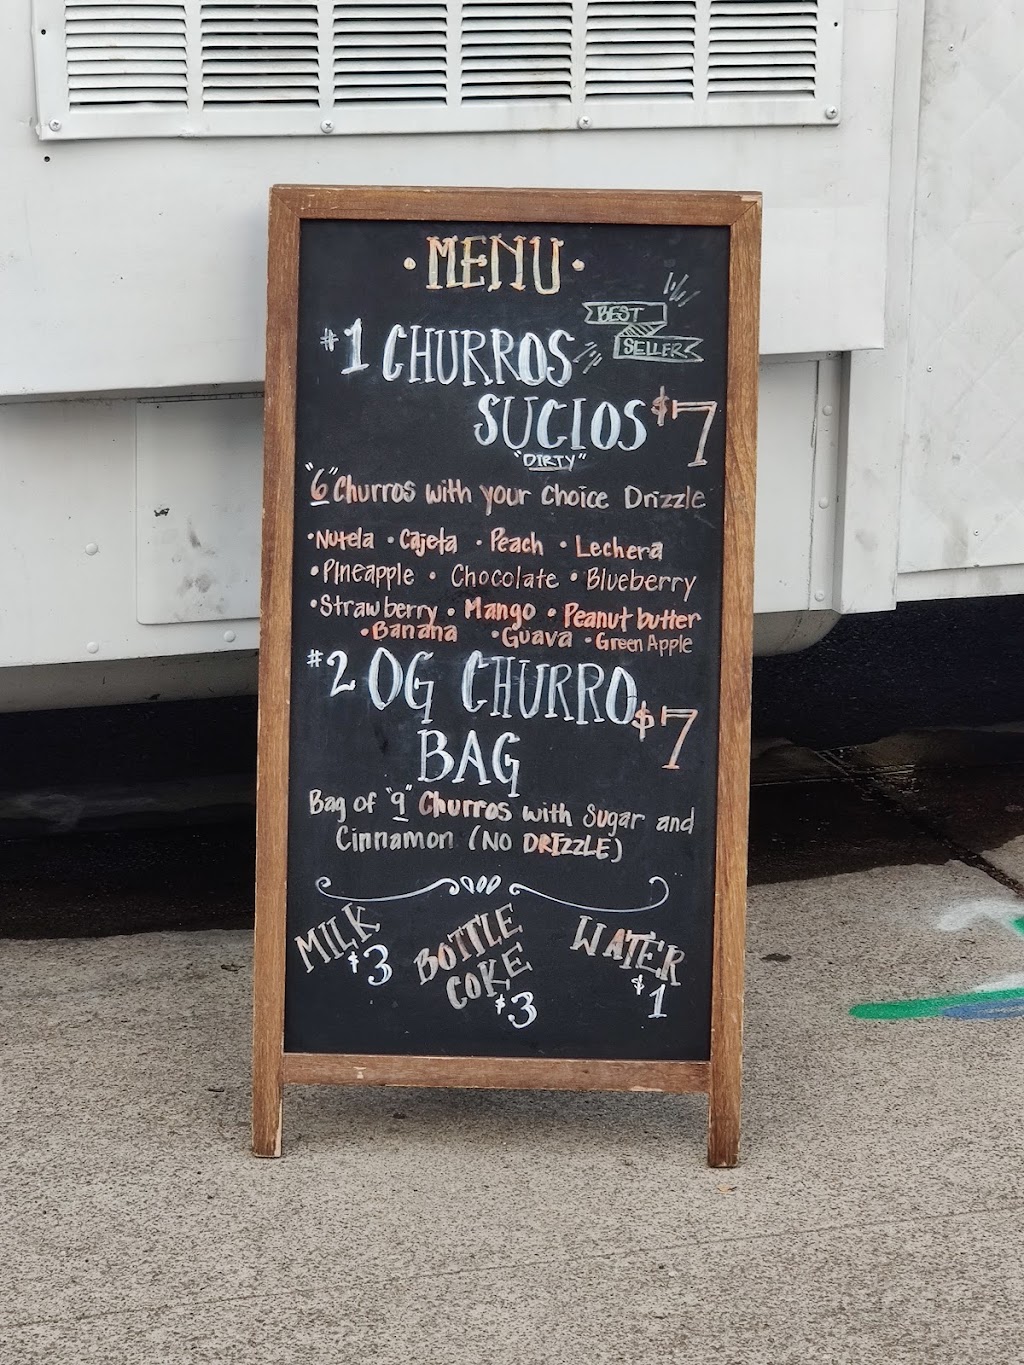 • MENU •
BEST
SELLER
#1 CHURROS
SUCIOS $7
"DIRTY"
"6" Churros with your Choice Drizzle
• Nutela • Cajeta • Peach • Lechera
• Pineapple • Chocolate • Blueberry
• Strawberry • Mango • Peanut butter
• Banana • Guava • Green Apple
#2 OG CHURRO
BAG $7
Bag of "9" Churros with Sugar and
Cinnamon (NO DRIZZLE)
MILK
$3
BOTTLE
COKE
$3
WATER
$1